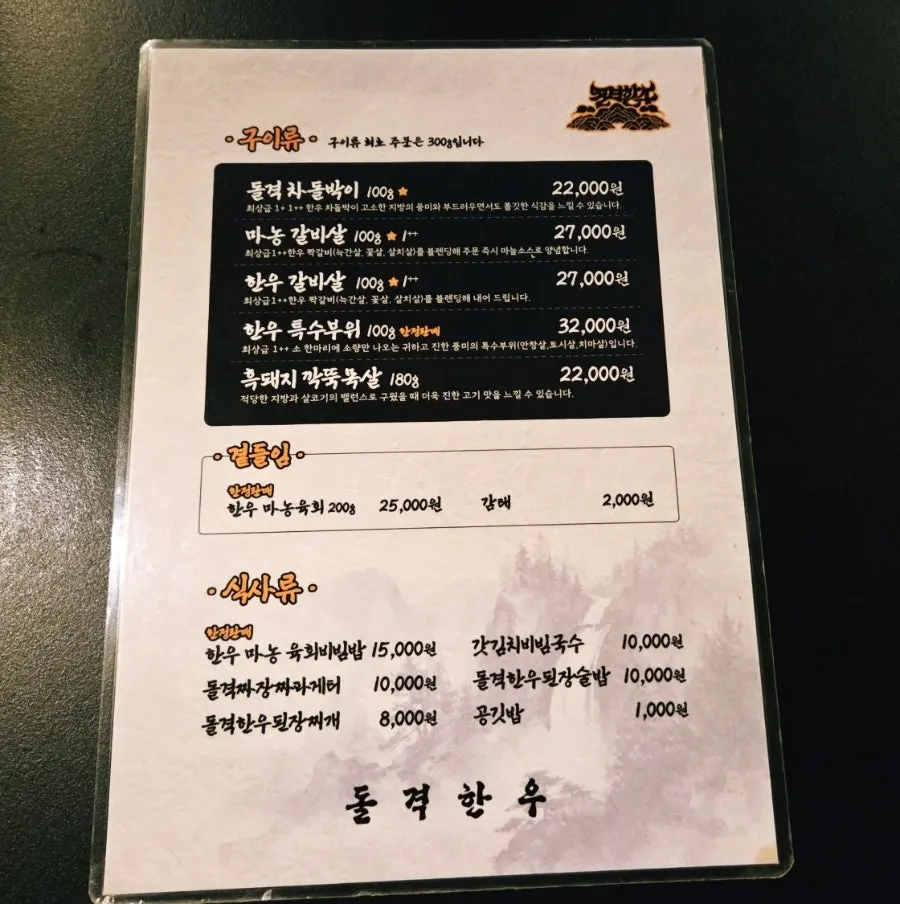 돌격한우
구이류 구이류 최소 주문은 300g입니다
돌격 차돌박이 100g 22,000원
최상급 1+ 1++ 한우 차돌박이 고소한 지방의 풍미와 부드러우면서도 쫄깃한 식감을 느낄 수 있습니다.
마농 갈비살 100g 1++ 27,000원
최상급1++한우 짝갈비(늑간살, 꽃살, 살치살)를 블렌딩해 주문 즉시 마늘소스로 양념합니다.
한우 갈비살 100g 1++ 27,000원
최상급1++한우 짝갈비(늑간살, 꽃살, 살치살)를 블렌딩해 내어 드립니다.
한우 특수부위 100g 한정판매 32,000원
최상급 1++ 소 한마리에 소량만 나오는 귀하고 진한 풍미의 특수부위(안창살,토시살,치마살)입니다.
흑돼지 깍뚝목살 180g 22,000원
적당한 지방과 살코기의 밸런스로 구웠을 때 더욱 진한 고기 맛을 느낄 수 있습니다.
곁들임
한정판매
한우 마농육회 200g 25,000원 감태 2,000원
식사류
한정판매
한우 마농 육회비빔밥 15,000원 갓김치비빔국수 10,000원
돌격짜장짜파게티 10,000원 돌격한우된장술밥 10,000원
돌격한우된장찌개 8,000원 공깃밥 1,000원
돌격한우